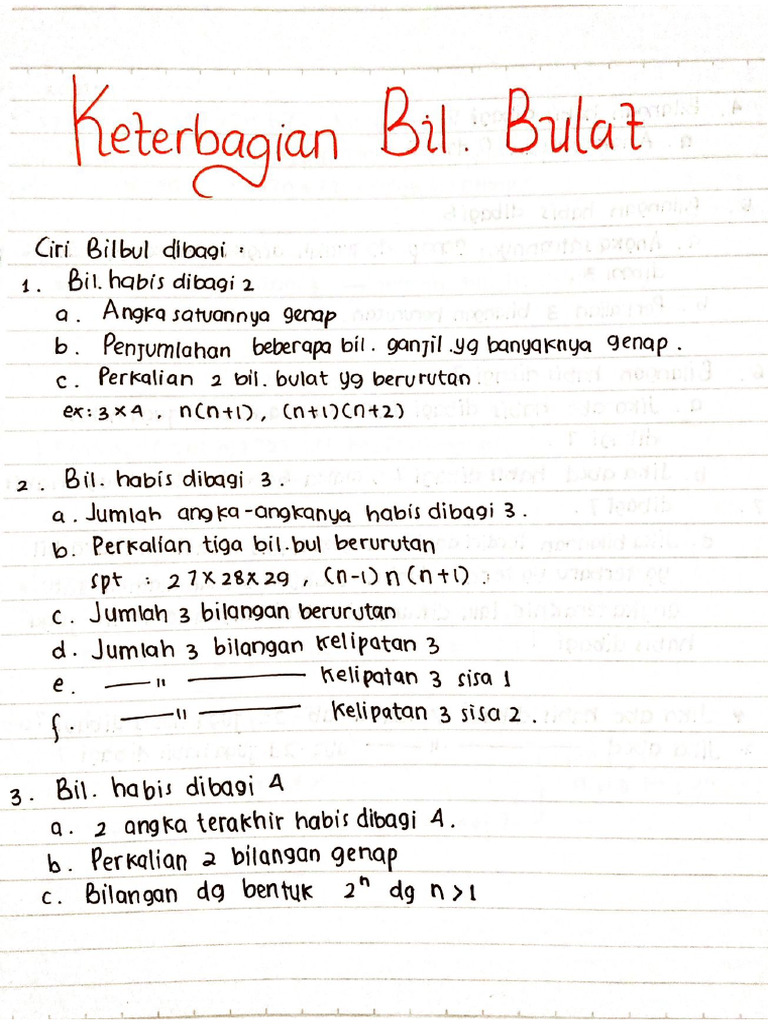 Keterbagian Bil. Bulat
Ciri Bilbul dibagi :
1. Bil. habis dibagi 2
a. Angka satuannya genap
b. Penjumlahan beberapa bil. ganjil yg banyaknya genap.
c. Perkalian 2 bil. bulat yg berurutan
ex: 3 x 4, n(n+1), (n+1)(n+2)
2. Bil. habis dibagi 3.
a. Jumlah angka-angkanya habis dibagi 3.
b. Perkalian tiga bil. bul berurutan
spt : 27 x 28 x 29, (n-1) n (n+1).
c. Jumlah 3 bilangan berurutan
d. Jumlah 3 bilangan kelipatan 3
e. —— " —— kelipatan 3 sisa 1
f. —— " —— kelipatan 3 sisa 2.
3. Bil. habis dibagi 4
a. 2 angka terakhir habis dibagi 4.
b. Perkalian 2 bilangan genap
c. Bilangan dg bentuk 2ⁿ dg n > 1